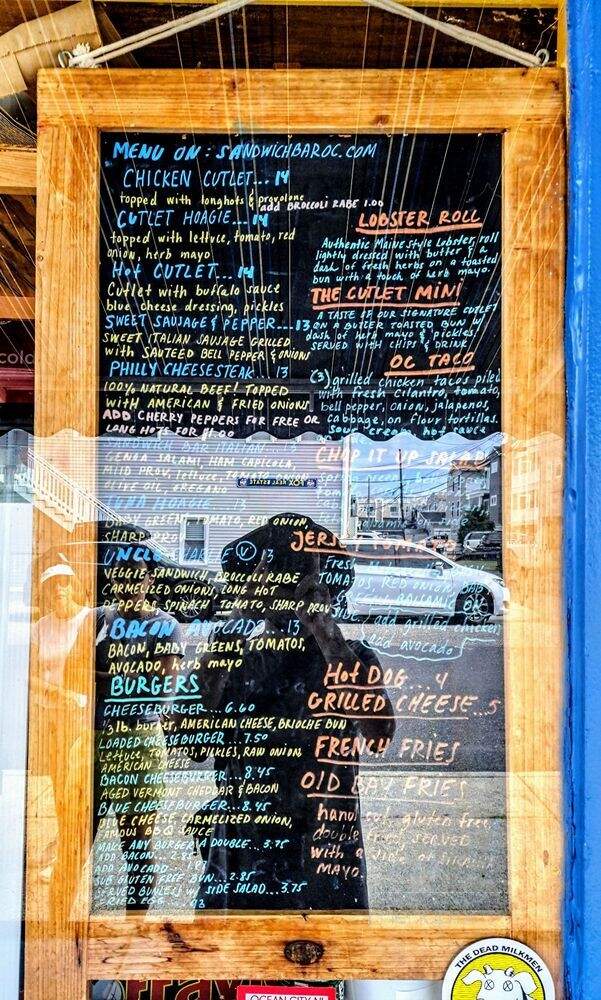 MENU ON: SANDWICHBAROC.COM
CHICKEN CUTLET... 14
topped with longhots & provolone
add BROCCOLI RABE 1.00
CUTLET HOAGIE... 14
topped with lettuce, tomato, red
onion, herb mayo
HOT CUTLET... 14
Cutlet with buffalo sauce
blue cheese dressing, pickles
SWEET SAUSAGE & PEPPER... 13
SWEET ITALIAN SAUSAGE GRILLED
with SAUTEED BELL PEPPER & ONIONS
PHILLY CHEESESTEAK... 13
100% NATURAL BEEF! TOPPED
WITH AMERICAN & FRIED ONIONS
ADD CHERRY PEPPERS FOR FREE OR
LONG HOTS FOR $1.00
BAR ITALIAN... 13
GENOA SALAMI, HAM, CAPICOLA,
MILD PROV, lettuce,
OLIVE OIL, OREGANO
TUNA HOAGIE 13
BABY GREENS, TOMATO, RED ONION,
SHARP PROV
UNCLE CHARLIE (V) 13
VEGGIE SANDWICH, BROCCOLI RABE
CARMELIZED ONIONS, LONG HOT
PEPPERS, SPINACH, TOMATO, SHARP PROV
BACON AVOCADO... 13
BACON, BABY GREENS, TOMATOES,
AVOCADO, herb mayo
BURGERS
CHEESEBURGER... 6.60
1/3 lb. burger, AMERICAN CHEESE, BRIOCHE BUN
LOADED CHEESEBURGER... 7.50
Lettuce, TOMATOES, PICKLES, RAW ONION
AMERICAN CHEESE
BACON CHEESEBURGER... 8.45
AGED VERMONT CHEDDAR & BACON
BLUE CHEESEBURGER... 8.45
BLUE CHEESE, CARMELIZED ONION,
FAMOUS BBQ SAUCE
MAKE ANY BURGER A DOUBLE... 3.75
ADD BACON... 2.85
ADD AVOCADO
SUB GLUTEN FREE BUN... 2.85
SERVED BUNLESS W/ SIDE SALAD... 3.75
FRIED EGG
LOBSTER ROLL
Authentic Maine style Lobster roll
lightly dressed with butter & a
dash of fresh herbs on a toasted
bun with a touch of herb mayo.
THE CUTLET MINI
A TASTE OF OUR SIGNATURE CUTLET
ON A BUTTER TOASTED BUN W/
dash of herb mayo & pickles,
SERVED WITH CHIPS & DRINK
OC TACO
(3) grilled chicken tacos piled
with fresh cilantro, tomato,
bell pepper, onion, jalapenos,
cabbage, on flour tortillas.
sour cream, hot sauce
CHOP IT UP SALAD
balsamic on side
JERSEY TOMATO
Fresh
TOMATOES, RED ONION,
BALSAMIC
add grilled chicken
add avocado
HOT DOG... 4
GRILLED CHEESE... 5
FRENCH FRIES
OLD BAY FRIES
hand cut, gluten free,
double fried, SERVED
with a side of
MAYO
THE DEAD MILKMEN
OCEAN CITY NJ